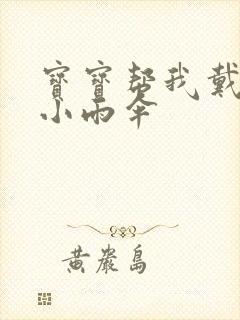 寶寶帮我戴
小雨伞
黄巖島